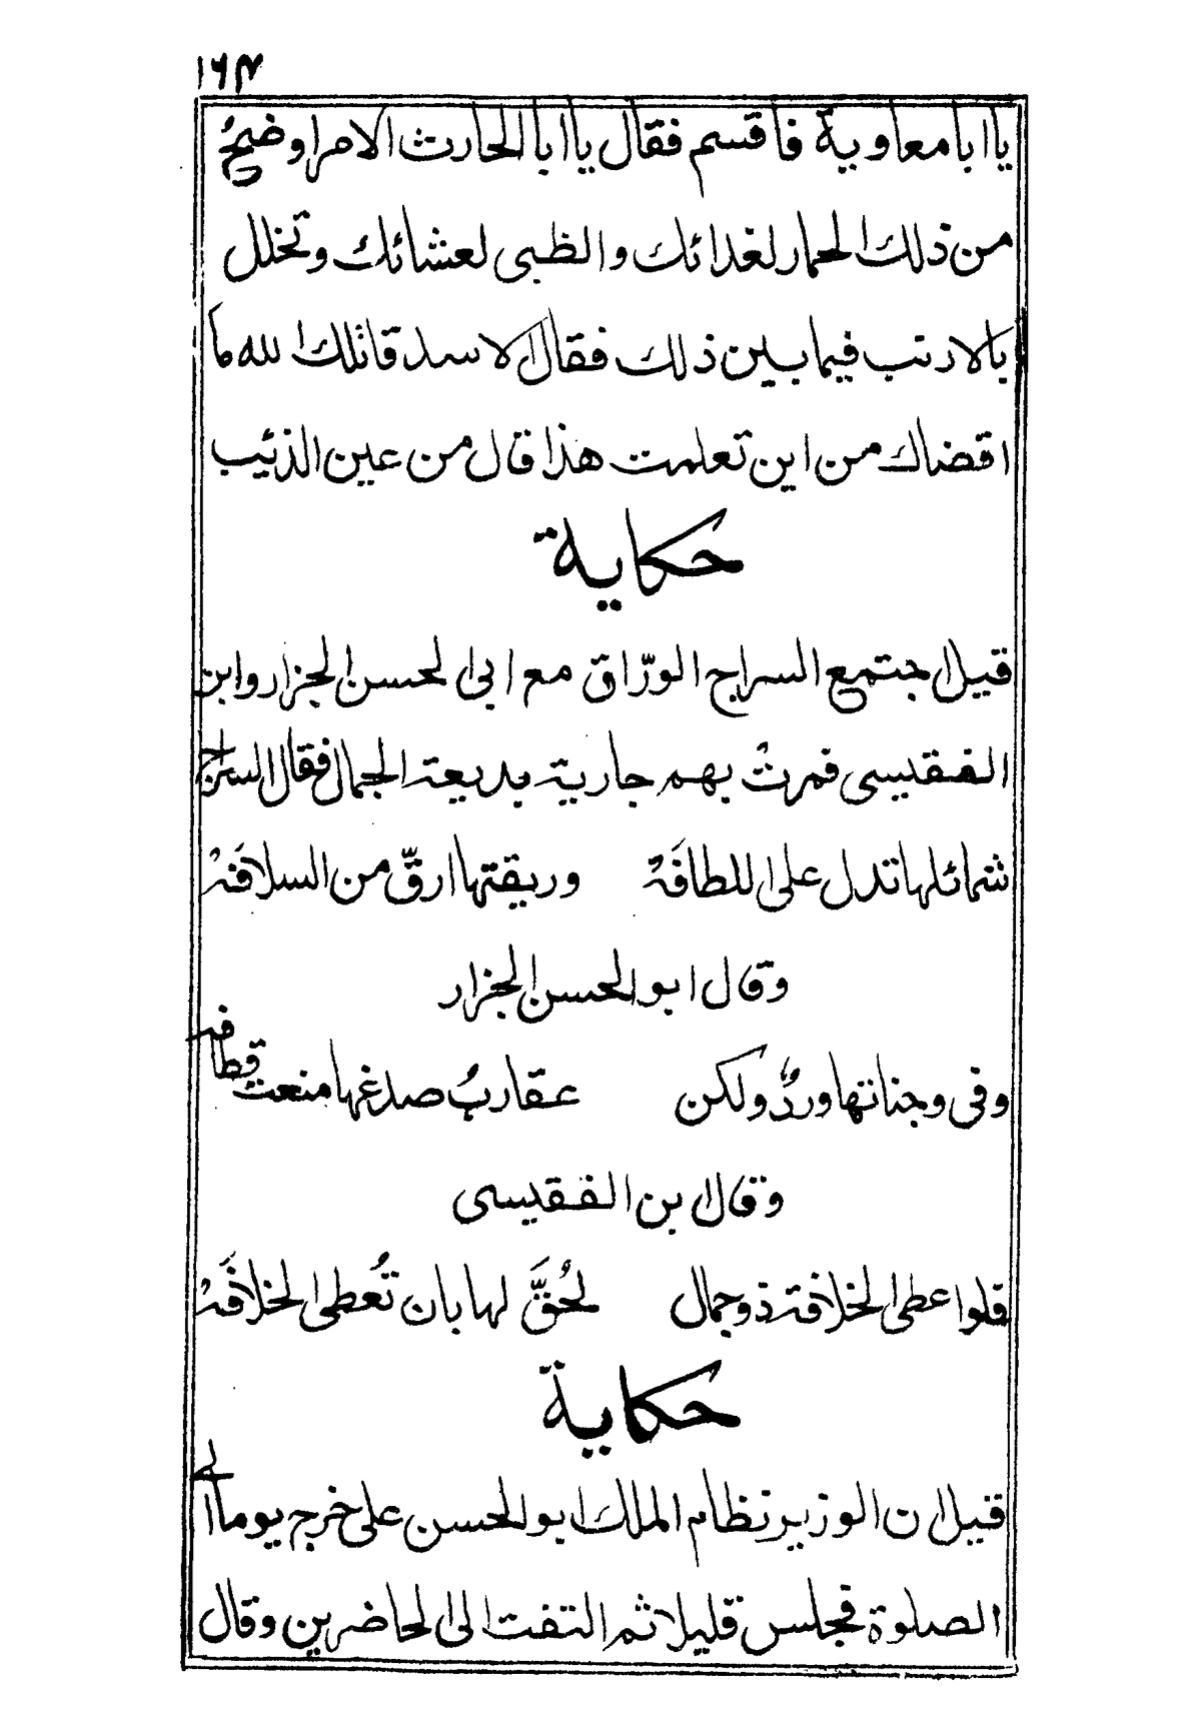 ١٦٣
يا ابا معاوية فاقسم فقال يا ابا الحارث الامر اوضحُ
من ذلك الحمار لغدائك والظبى لعشائك وتخلل
بالارنب فيما بين ذلك فقال الاسد قاتلك الله ما
اقضاك من اين تعلمت هذا قال من عين الذئيب
حكاية
قيل اجتمع السراج الورّاق مع ابى الحسن الجزار وابن
الفقيسى فمرت بهم جارية بديعة الجمال فقال السراج
شمائلها تدل على اللطافَهْ وريقتها ارقّ من السلافَهْ
وقال ابو الحسن الجزار
وفى وجناتها وردٌ ولكن عقاربُ صدغها منعت قطافه
وقال ابن الفقيسى
فلو اعطى الخلافة ذو جمال لحُقَّ لها بان تُعطى الخلافَهْ
حكاية
قيل ان الوزير نظام الملك ابو الحسن على خرج يوما الى
الصلوة فجلس قليلا ثم التفت الى الحاضرين وقال